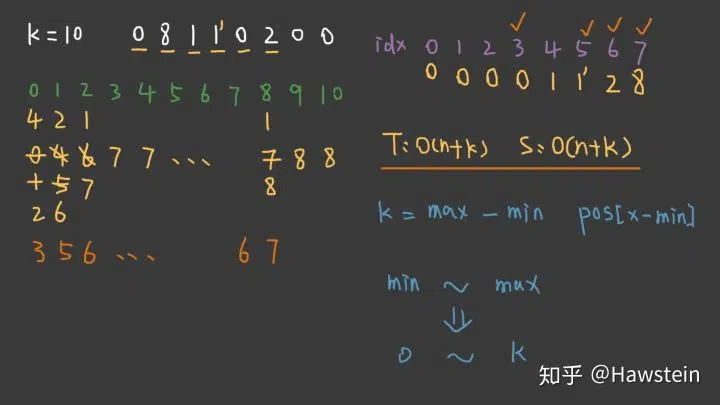 k=10 0 8 1 1' 0 2 0 0
0 1 2 3 4 5 6 7 8 9 10
4 2 1 1
0 4 6 7 7 ... 7 8 8
+ 5 7 8
2 6
3 5 6 ... 6 7
idx 0 1 2 3 4 5 6 7
0 0 0 0 1 1' 2 8
T:O(n+k) S:O(n+k)
k = max - min pos[x-min]
min ~ max
⇓
0 ~ k
知乎 @Hawstein